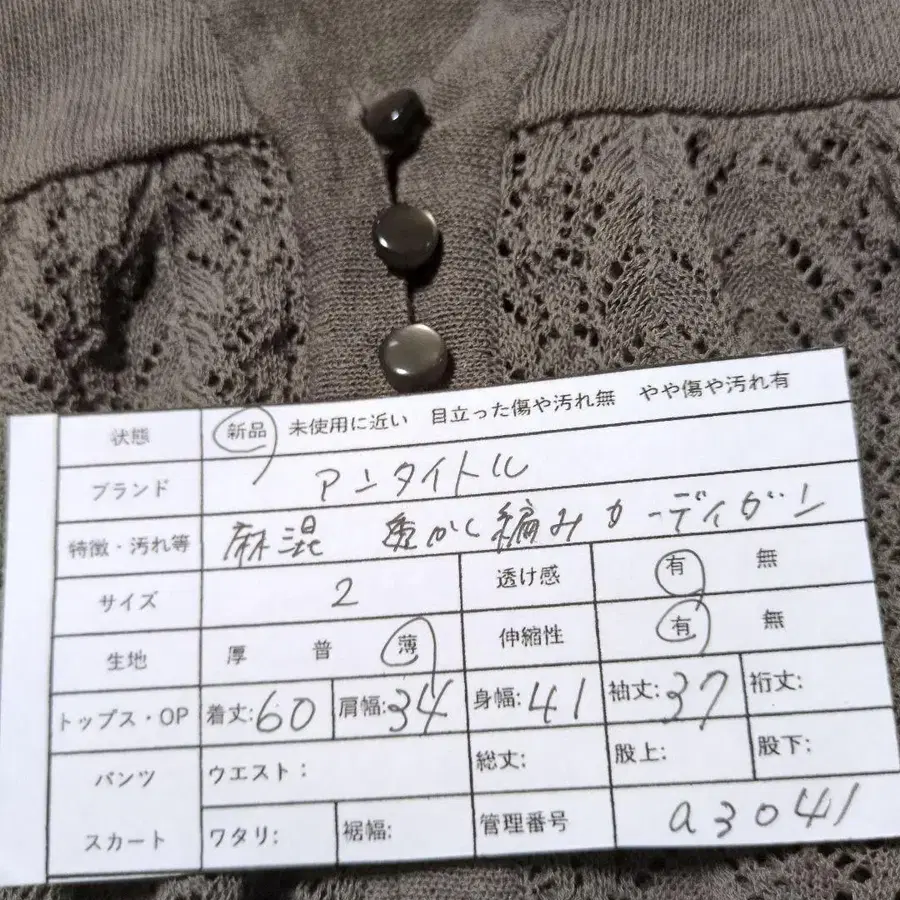 状態 新品 未使用に近い 目立った傷や汚れ無 やや傷や汚れ有
ブランド アンタイトル
特徴・汚れ等 麻混 透かし編みカーディガン
サイズ 2 透け感 有 無
生地 厚 普 薄 伸縮性 有 無
トップス・OP 着丈:60 肩幅:34 身幅:41 袖丈:37 裄丈:
パンツ ウエスト: 総丈: 股上: 股下:
スカート ワタリ: 裾幅: 管理番号 a3041